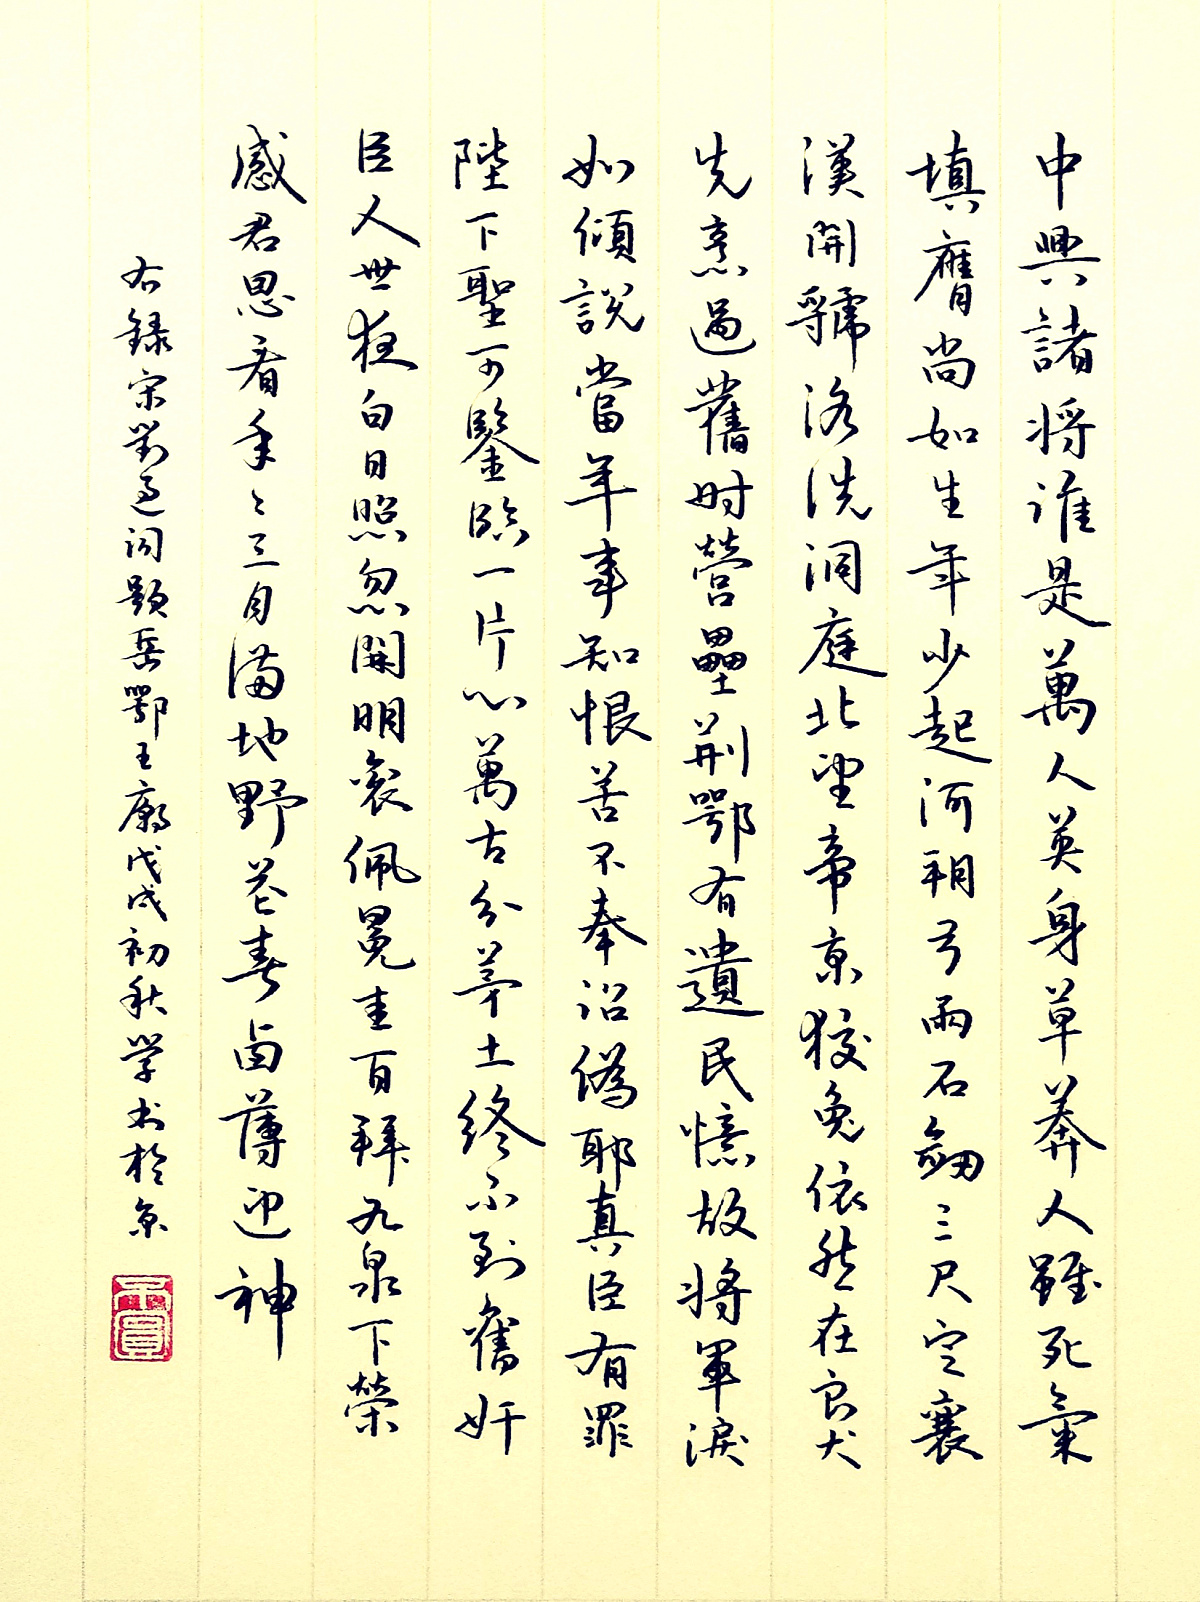 中興諸將誰是萬人英身草莽人雖死氣
填膺尚如生年少起河朔弓兩石劔三尺定襄
漢開虢洛洗洞庭北望帝京狡兔依然在良犬
先烹過舊时營壘荆鄂有遺民憶故將軍淚
如傾說當年事知恨苦不奉詔偽耶真臣有罪
陛下聖可鑒臨一片心萬古分茅土終不到舊奸
臣人世夜白日照忽開明衮佩冕圭百拜九泉下榮
感君恩看年〻三月滿地野花春鹵薄迎神
右録宋劉过词題岳鄂王廟戊戌初秋学书於京